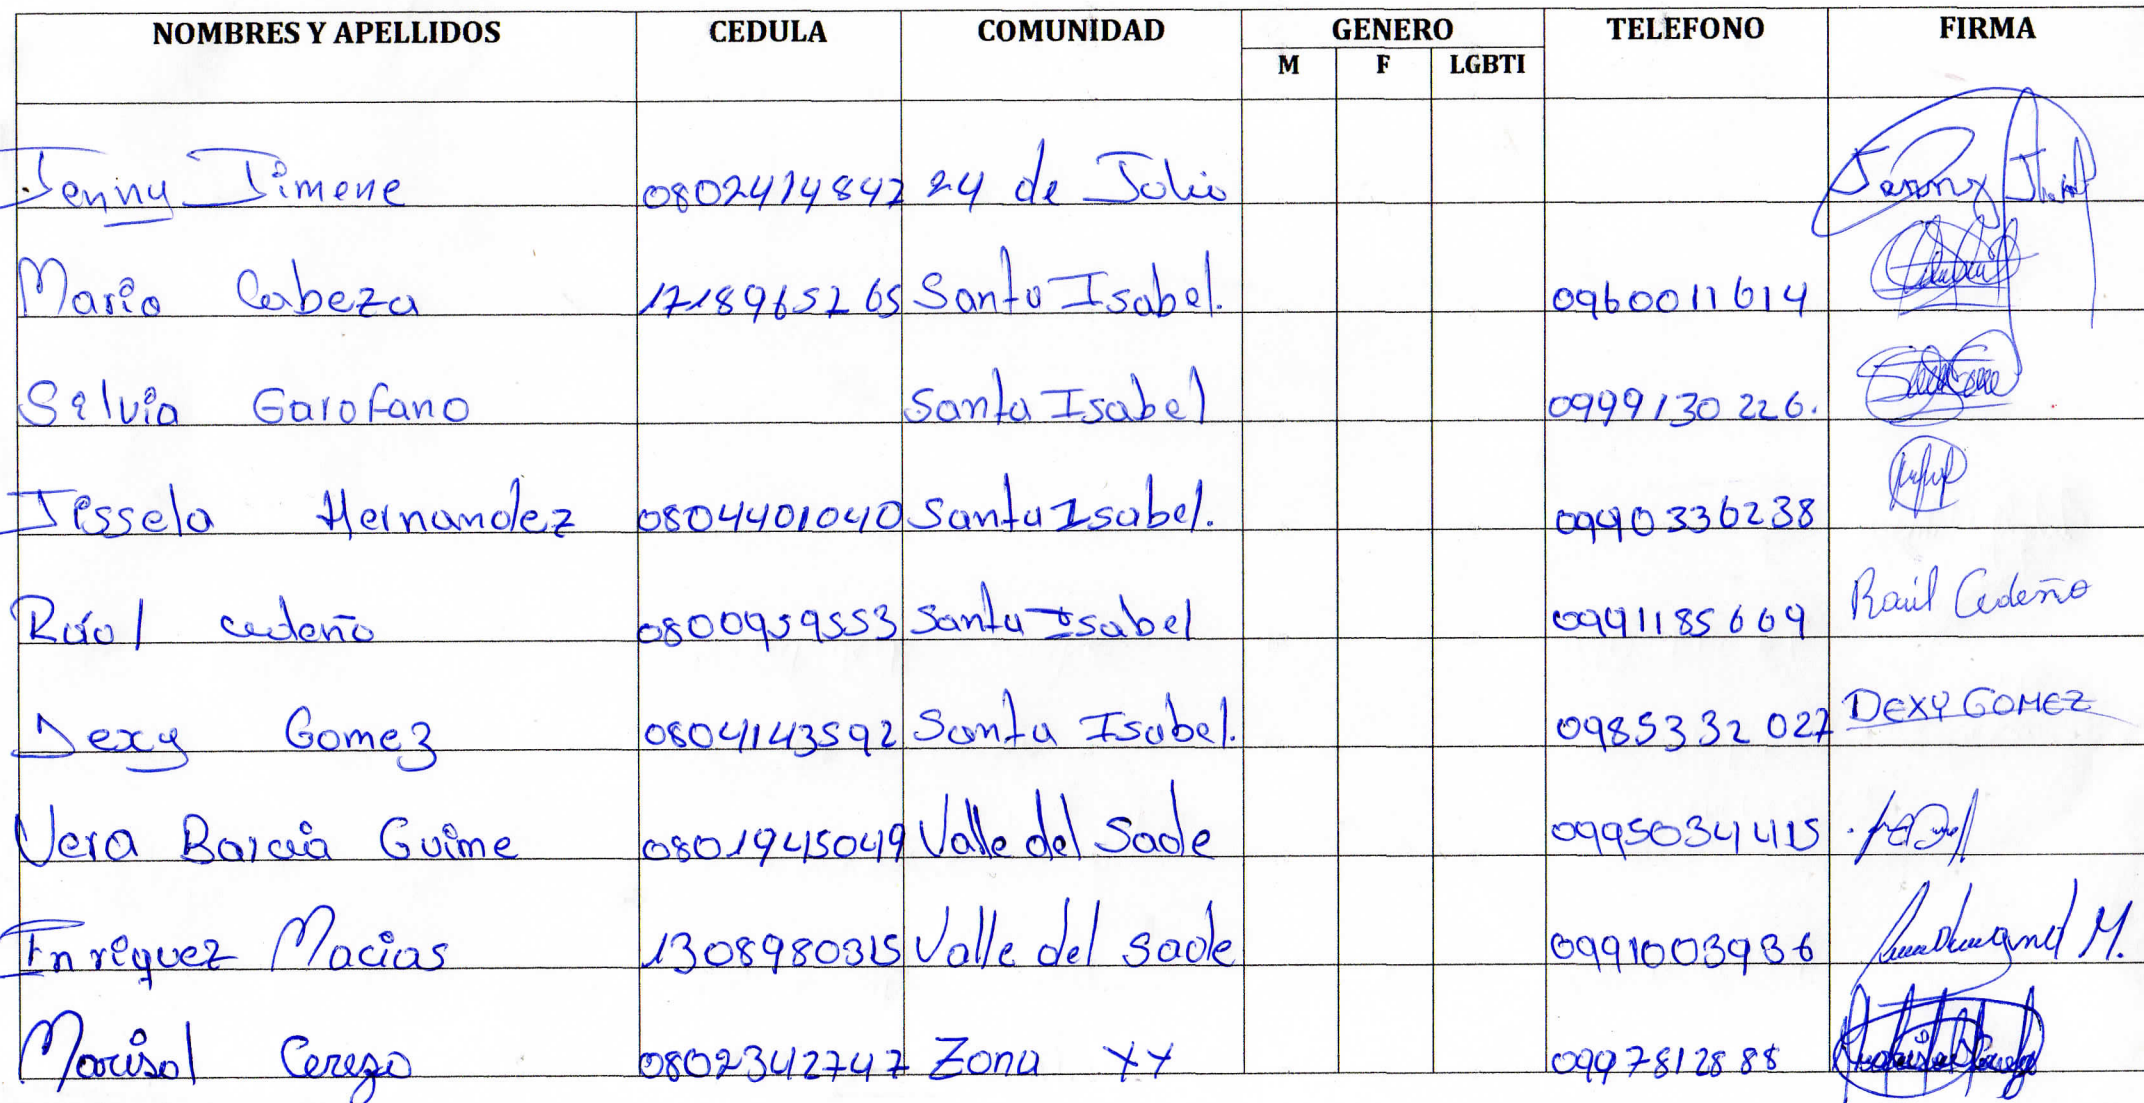 NOMBRES Y APELLIDOS CEDULA COMUNIDAD GENERO TELEFONO FIRMA
M F LGBTI
Jenny Jimene 0802414847 24 de Julio Jenny
Mario Cabeza 1718965265 Santa Isabel. 0960011614
Silvia Garofano Santa Isabel 0999130226.
Jessela Hernandez 0804401040 Santa Isabel. 0990336238
Rúal cedeño 0800959553 Santa Isabel 0991185669 Raúl Cedeño
Dexy Gomez 0804143592 Santa Isabel. 0985332027 DEXY GOMEZ
Vera Barcia Guime 0801945049 Valle del Sade 0995034415
Enriquez Macias 1308980315 Valle del Sade 0991003936 M.
Marisol Cerezo 0802342747 Zona YY 0997812888